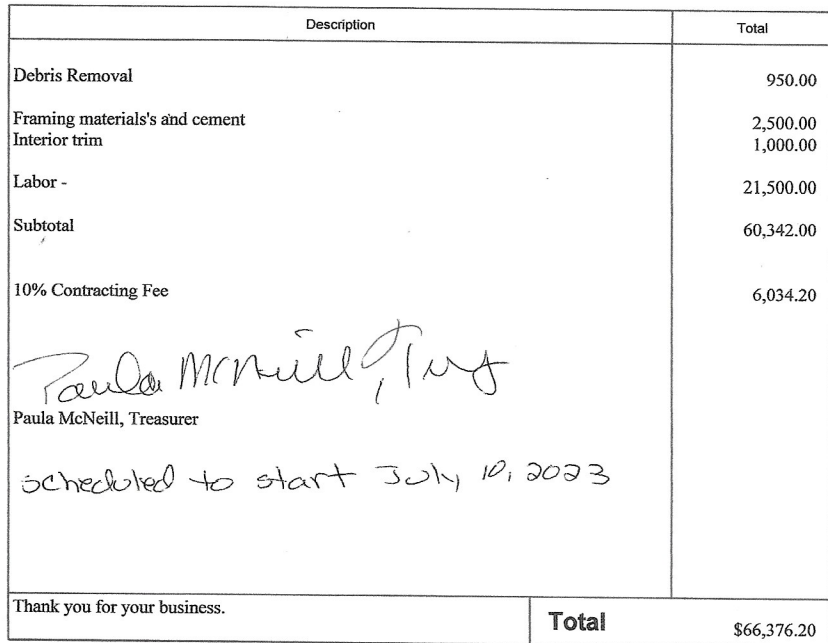 Description Total
Debris Removal 950.00
Framing materials's and cement 2,500.00
Interior trim 1,000.00
Labor - 21,500.00
Subtotal 60,342.00
10% Contracting Fee 6,034.20
Paula McNeill, Trs
Paula McNeill, Treasurer
scheduled to start July 10, 2023
Thank you for your business. Total $66,376.20